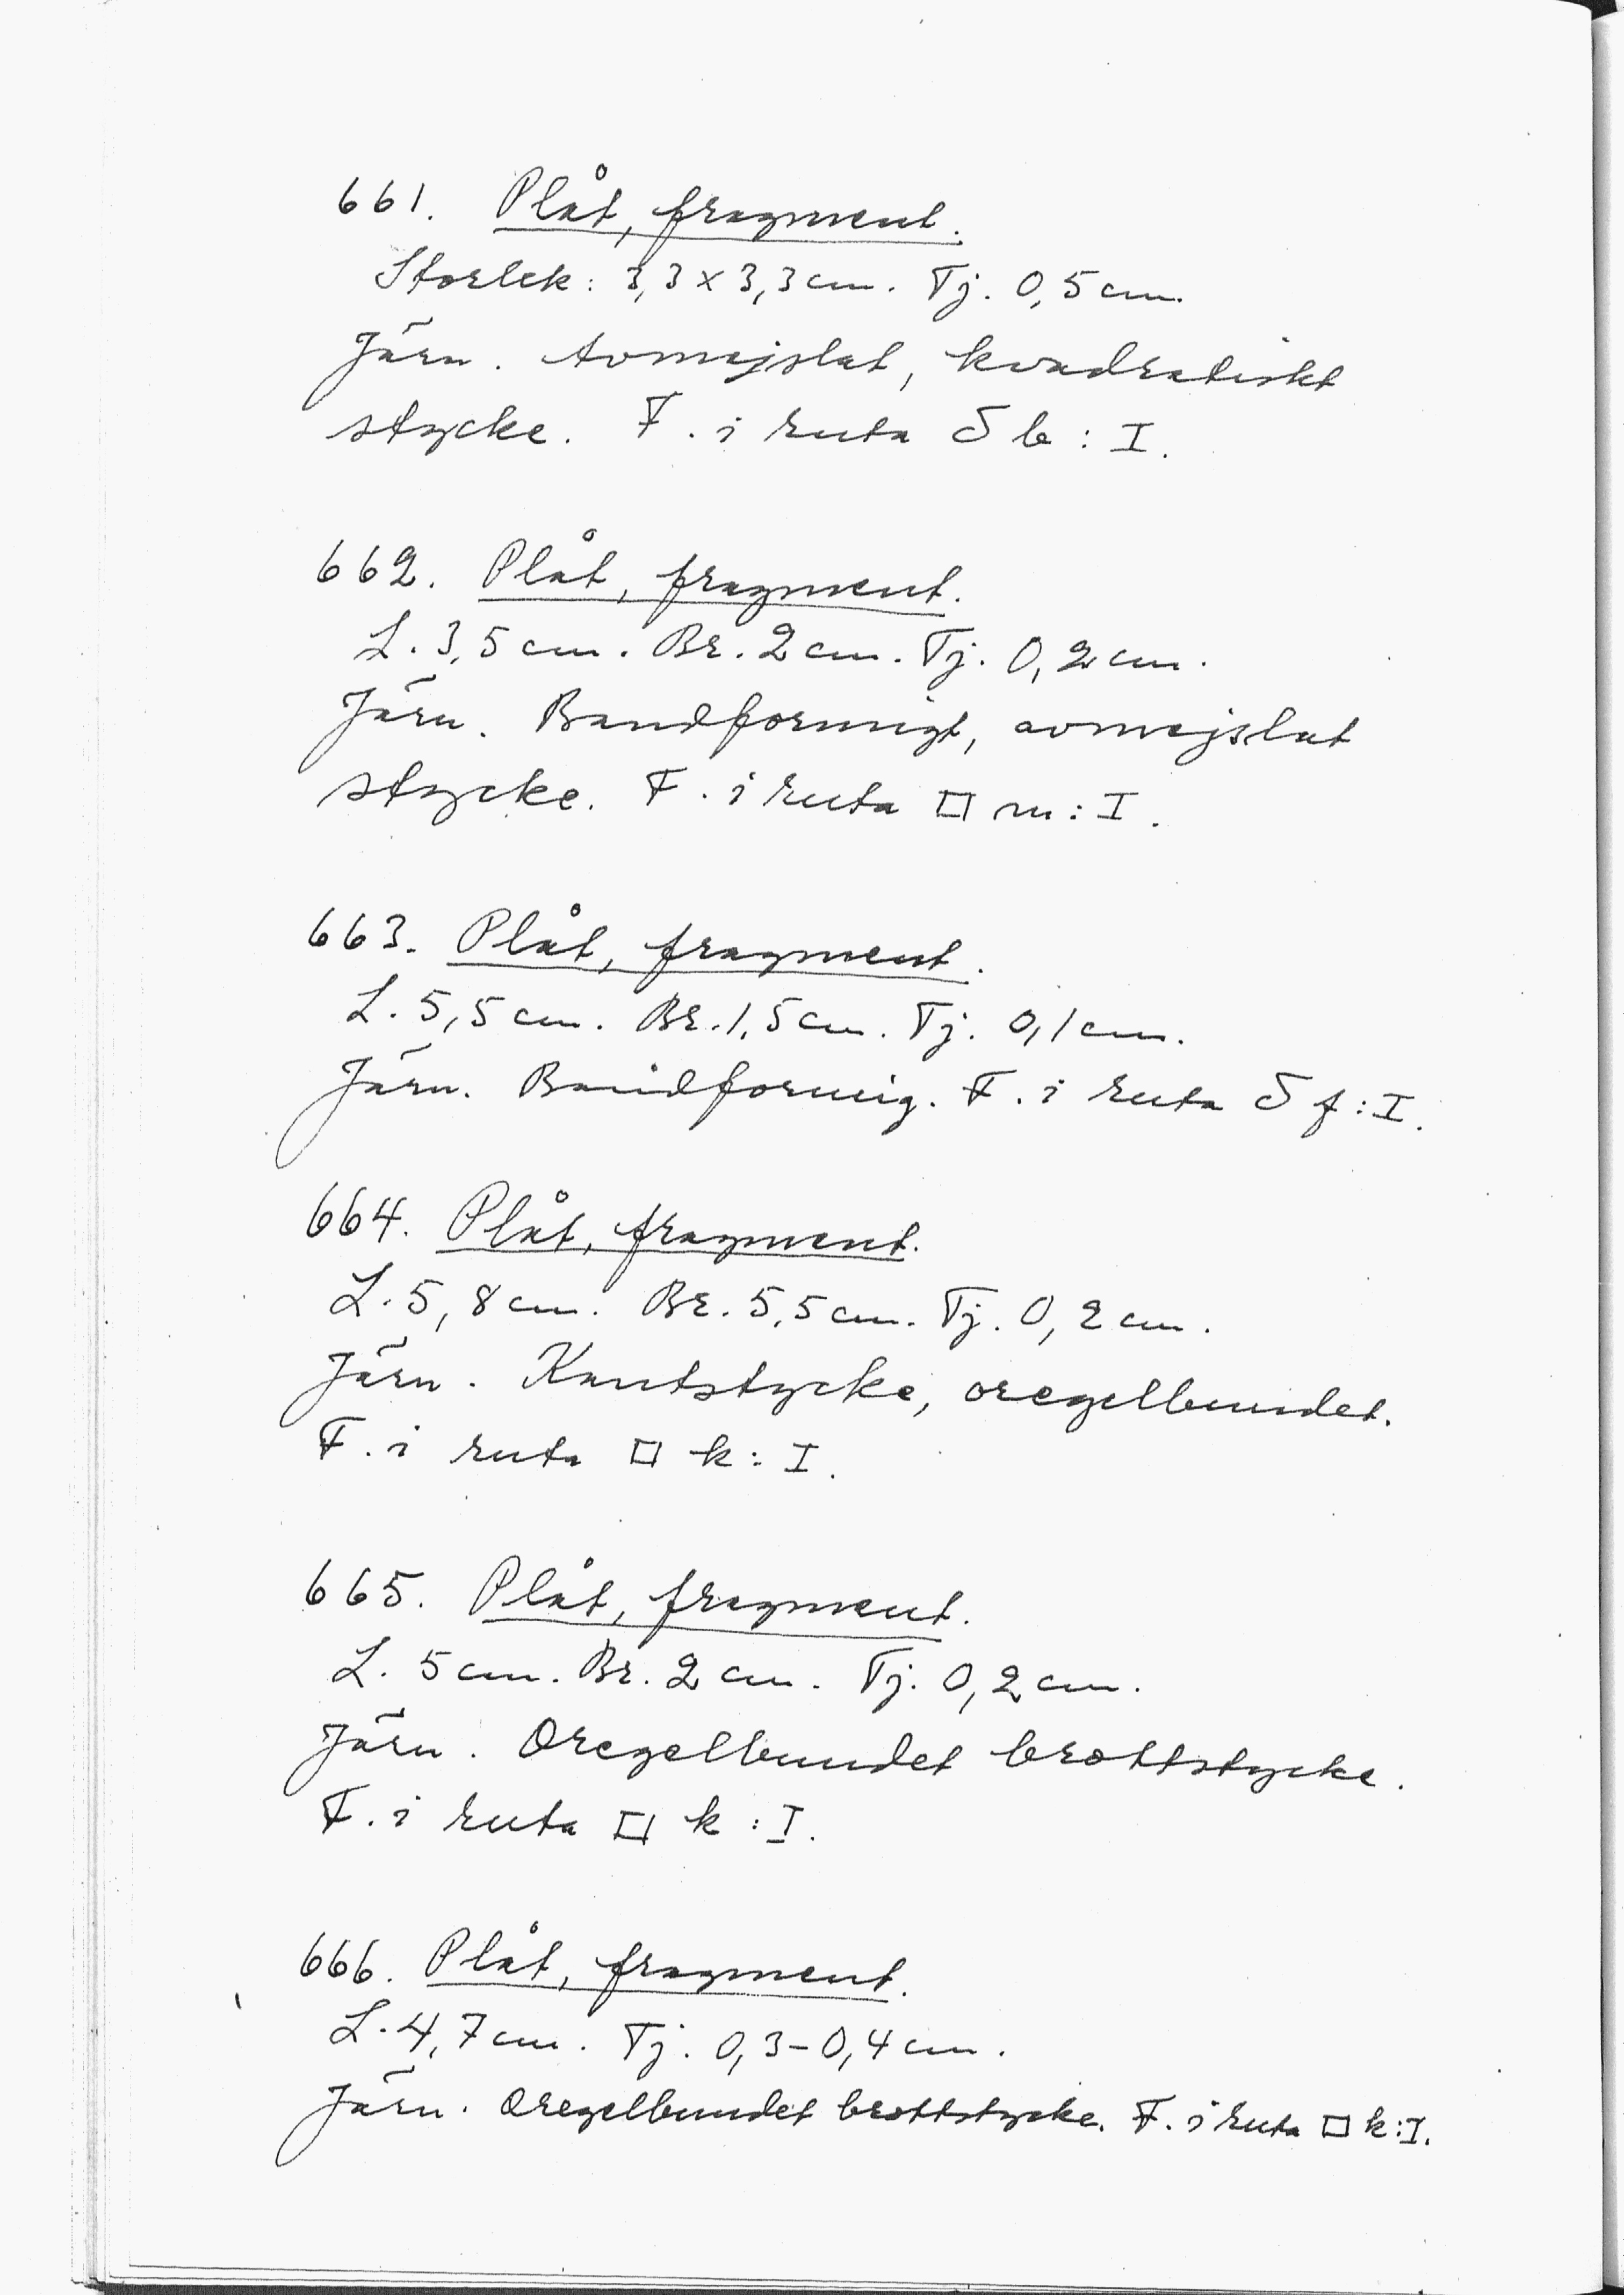 661. Plåt, fragment.
Storlek: 3,3 x 3,3 cm. Tj. 0,5 cm.
Järn. Avmejslat, kvadratiskt
stycke. F. i ruta δ b : I.
662. Plåt, fragment.
L. 3,5 cm. Br. 2 cm. Tj. 0,2 cm.
Järn. Bandformigt, avmejslat
stycke. F. i ruta □ m : I.
663. Plåt, fragment.
L. 5,5 cm. Br. 1,5 cm. Tj. 0,1 cm.
Järn. Bandformig. F. i ruta δ f : I.
664. Plåt, fragment.
L. 5,8 cm. Br. 5,5 cm. Tj. 0,2 cm.
Järn. Kantstycke, oregelbundet.
F. i ruta □ k : I.
665. Plåt, fragment.
L. 5 cm. Br. 2 cm. Tj. 0,2 cm.
Järn. Oregelbundet brottstycke.
F. i ruta □ k : I.
666. Plåt, fragment.
L. 4,7 cm. Tj. 0,3-0,4 cm.
Järn. Oregelbundet brottstycke. F. i ruta □ k : I.